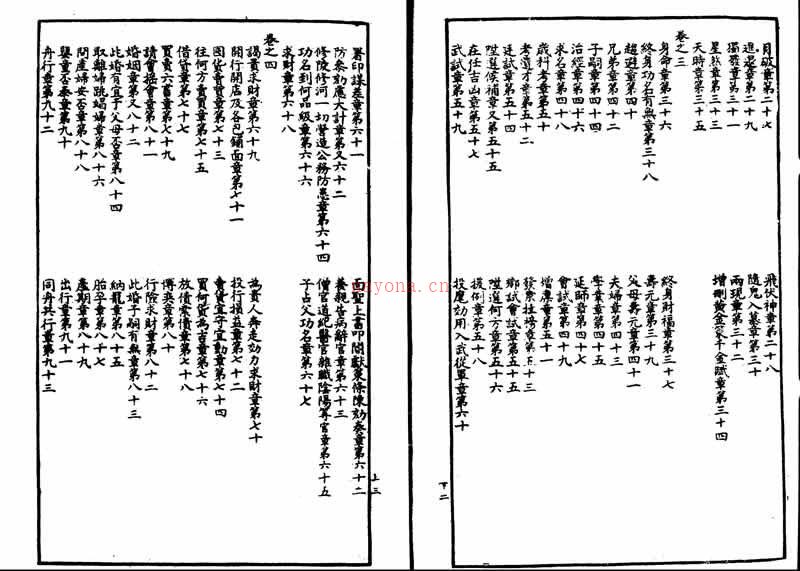 月破章第二十七
飛伏神章第二十八
進退章第二十九
隨鬼入墓章第三十
獨發章第三十一
兩現章第三十二
星煞章第三十三
增刪黃金策千金賦章第三十四
天時章第三十五
卷之三
身命章第三十六
終身財福章第三十七
終身功名有無章第三十八
壽元章第三十九
趨避章第四十
父母壽元章第四十一
兄弟章第四十二
夫婦章第四十三
子嗣章第四十四
學業章第四十五
治經章第四十六
延師章第四十七
求名章第四十八
會試章第四十九
歲科考章第五十
增廣章第五十一
考遺才章第五十二
發案挂榜章第五十三
廷試章第五十四
鄉試會試章第五十五
陞選候補章又第五十五
陞選何方章第五十六
在任吉凶章第五十七
援例章第五十八
武試章第五十九
投麾効用入武從軍章第六十
下二
上三
署印謀差章第六十一
面聖上書叩閽獻策條陳劾奏章第六十二
防參劾慮大計章第又六十二
養親告病辭官章第六十三
修陵修河一切營造公務防患章第六十四
僧官道紀醫官雜職陰陽等官章第六十五
功名到何品級章第六十六
子占父功名章第六十七
求財章第六十八
卷之四
謁貴求財章第六十九
為貴人奔走効力求財章第七十
開行開店及各色鋪面章第七十一
投行損益章第七十二
囤貨賣買章第七十三
賣貨宜守宜動章第七十四
往何方賣買章第七十五
買何貨為吉章第七十六
借貸章第七十七
放債索債章第七十八
買賣六畜章第七十九
博戲章第八十
請會搖會章第八十一
行險求財章第八十二
婚姻章第又八十二
此婚子嗣有無章第八十三
此婚有宜于父母否章第八十四
納寵章第八十五
取離婦跳娼婦章第八十六
胎孕章第八十七
問產婦安否章第八十八
產期章第八十九
嬰童否泰章第九十
出行章第九十一
舟行章第九十二
同舟共行章第九十三